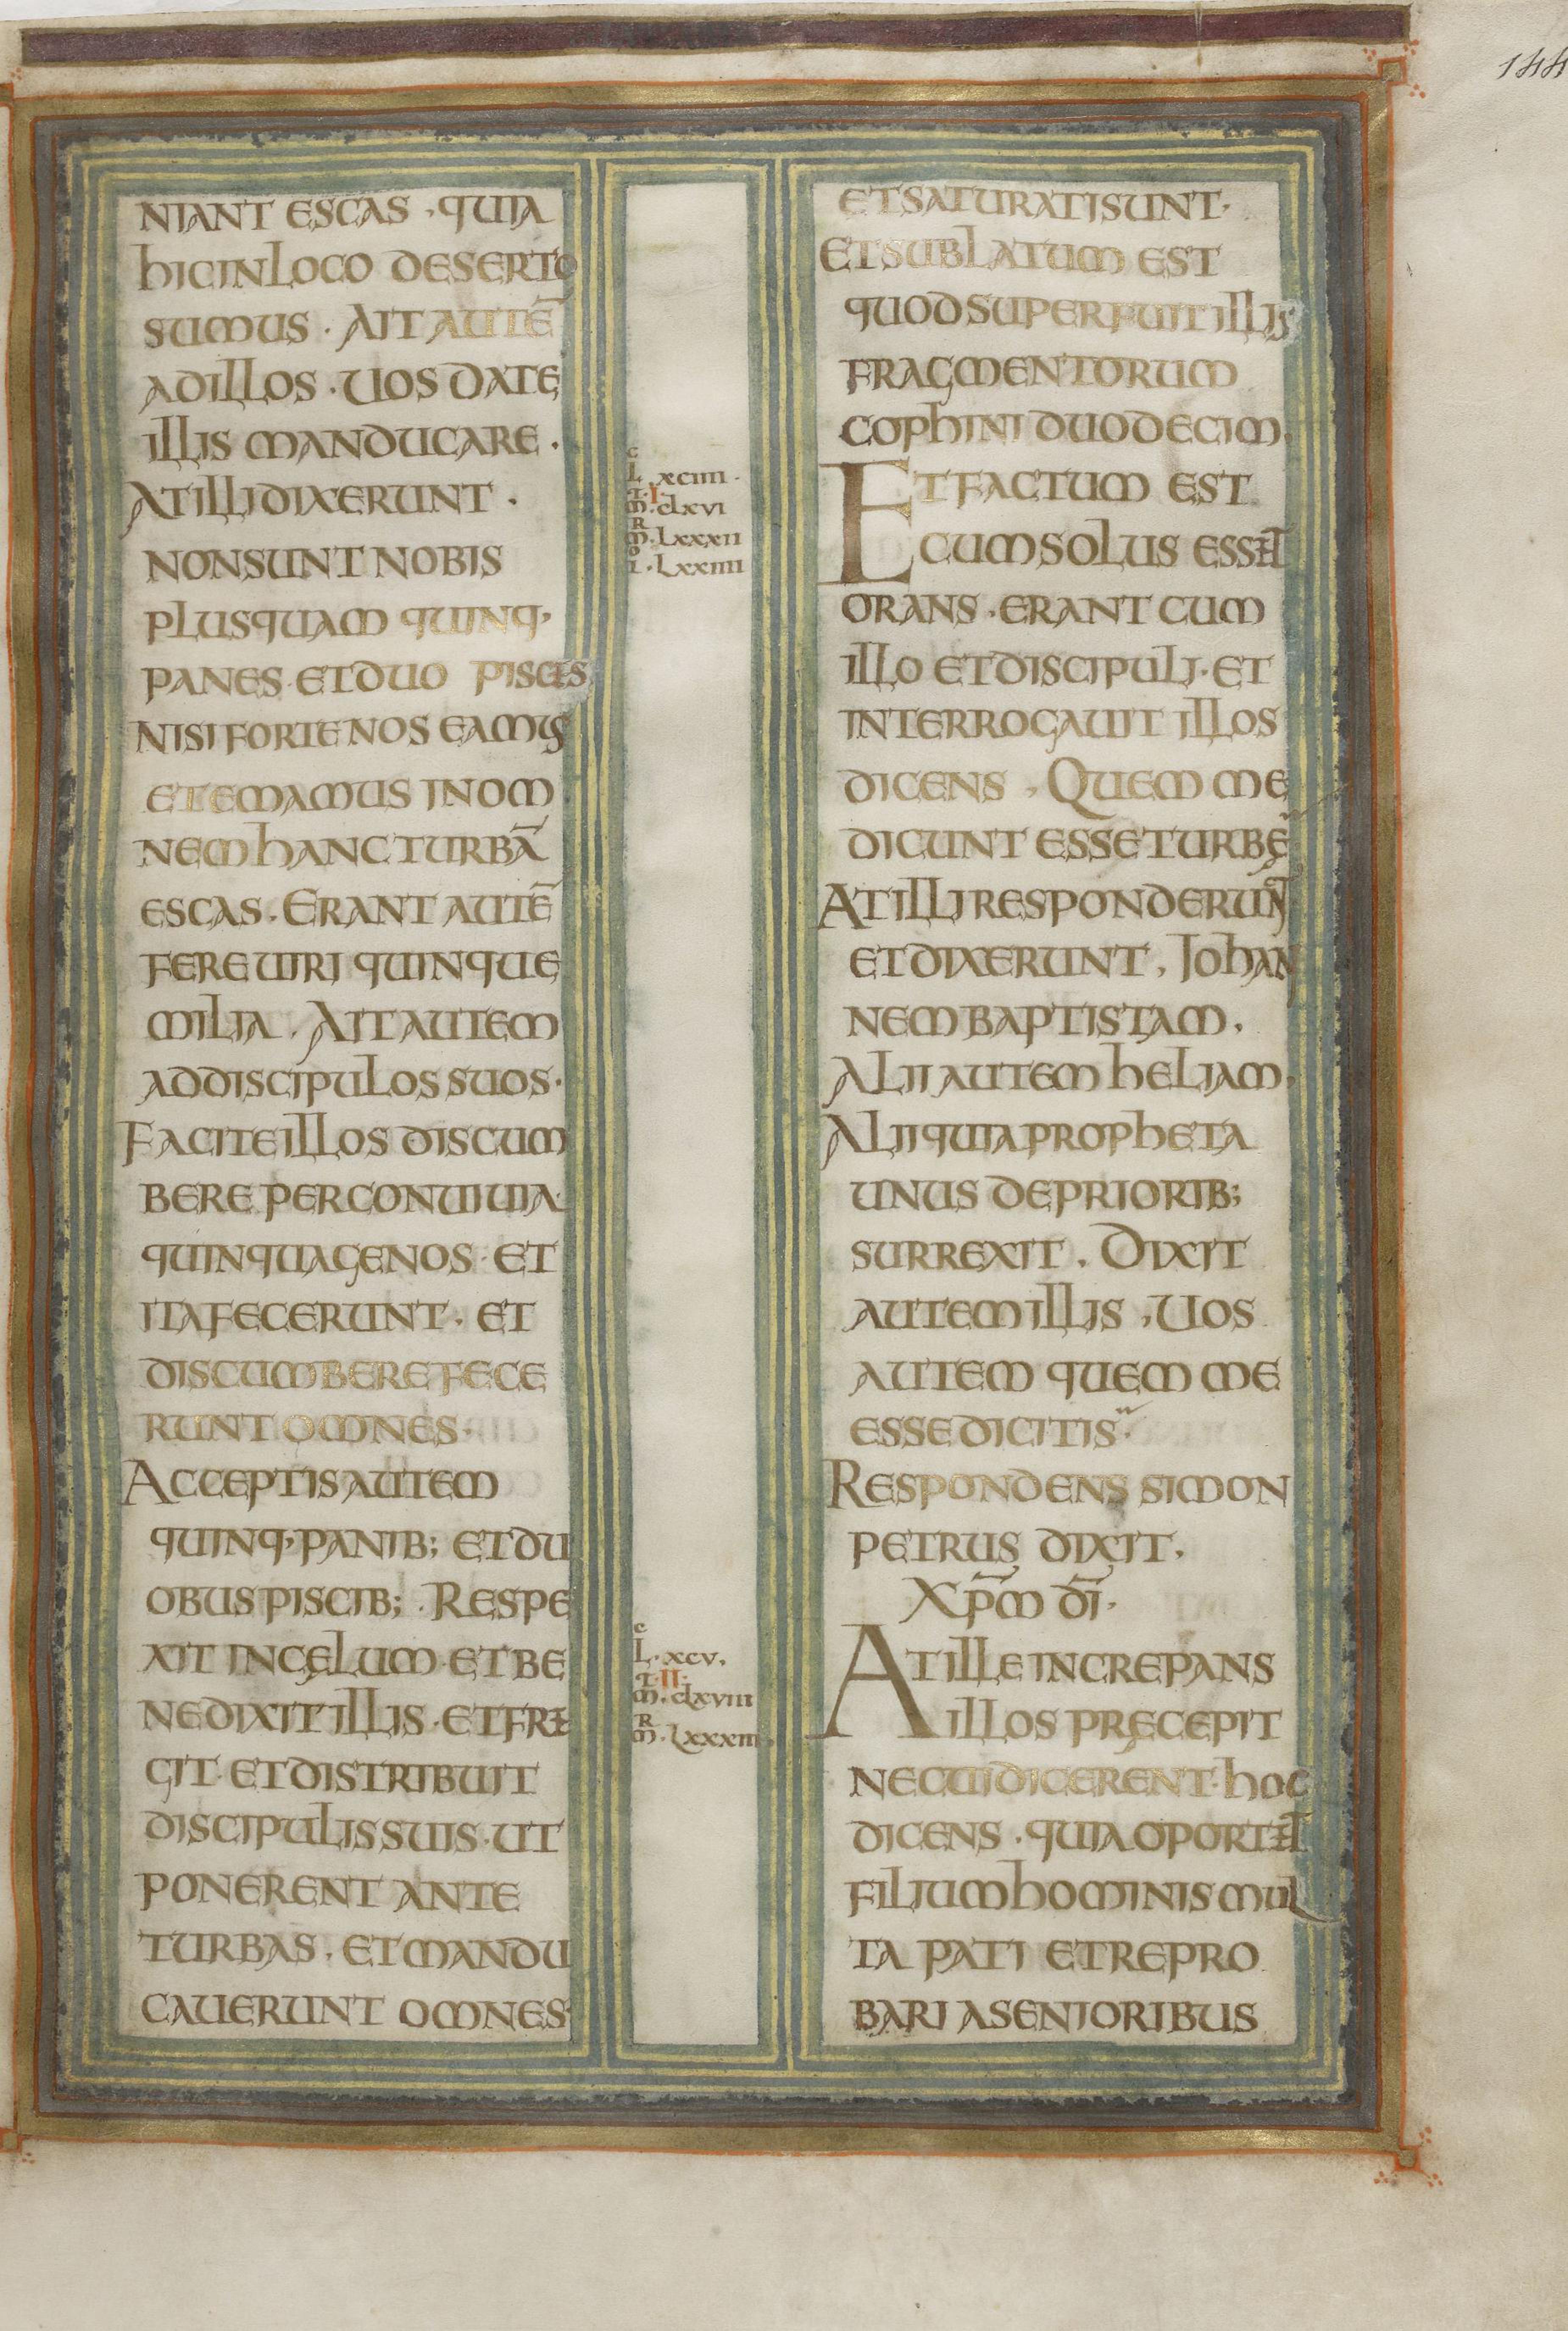 144
NIANT ESCAS · QUIA
hICINLOCO DESERTO
SUMUS · AIT AUTĒ
ADILLOS · UOS DATE
ILLIS MANDUCARE ·
ATILLIDIXERUNT ·
NONSUNT NOBIS
PLUSQUAM QUINQ,
PANES · ETDUO PISCES
NISI FORTE NOS EAMUS
ETEMAMUS IN OM
NEM hANC TURBĀ
ESCAS · ERANT AUTĒ
FERE UIRI QUINQUE
MILIA · AIT AUTEM
ADDISCIPULOS SUOS ·
FACITE ILLOS DISCUM
BERE PER CONUIUIA ·
QUINQUAGENOS · ET
ITAFECERUNT · ET
DISCUMBERE FECE
RUNT OMNES ·
ACCEPTIS AUTEM
QUINQ, PANIB; ET DU
OBUS PISCIB; · RESPE
XIT IN CĘLUM · ET BE
NEDIXIT ILLIS · ET FRE
GIT · ET DISTRIBUIT
DISCIPULIS SUIS · UT
PONERENT ANTE
TURBAS · ET MANDU
CAUERUNT OMNES ·
C
L · XCIIII ·
T · I ·
M · CLXVI
R
M · LXXXII
O
I · LXXIIII
C
L · XCV ·
T · II ·
M · CLXVIII
R
M · LXXXIII ·
ET SATURATI SUNT ·
ET SUBLATUM EST
QUOD SUPERFUIT ILLIS
FRAGMENTORUM
COPhINI DUODECIM ·
ET FACTUM EST
CUM SOLUS ESSET
ORANS · ERANT CUM
ILLO ET DISCIPULI · ET
INTERROGAUIT ILLOS
DICENS · QUEM ME
DICUNT ESSE TURBĘ
AT ILLI RESPONDERUNT
ET DIXERUNT · IOhAN
NEM BAPTISTAM ·
ALII AUTEM hELIAM ·
ALII QUIA PROPhETA
UNUS DE PRIORIB;
SURREXIT · DIXIT
AUTEM ILLIS · UOS
AUTEM QUEM ME
ESSE DICITIS ·
RESPONDENS SIMON
PETRUS DIXIT ·
XP̄M DĪ ·
AT ILLE INCREPANS
ILLOS PRĘCEPIT
NE CUI DICERENT · hOC
DICENS · QUIA OPORTET
FILIUM hOMINIS MUL
TA PATI ET REPRO
BARI A SENIORIBUS